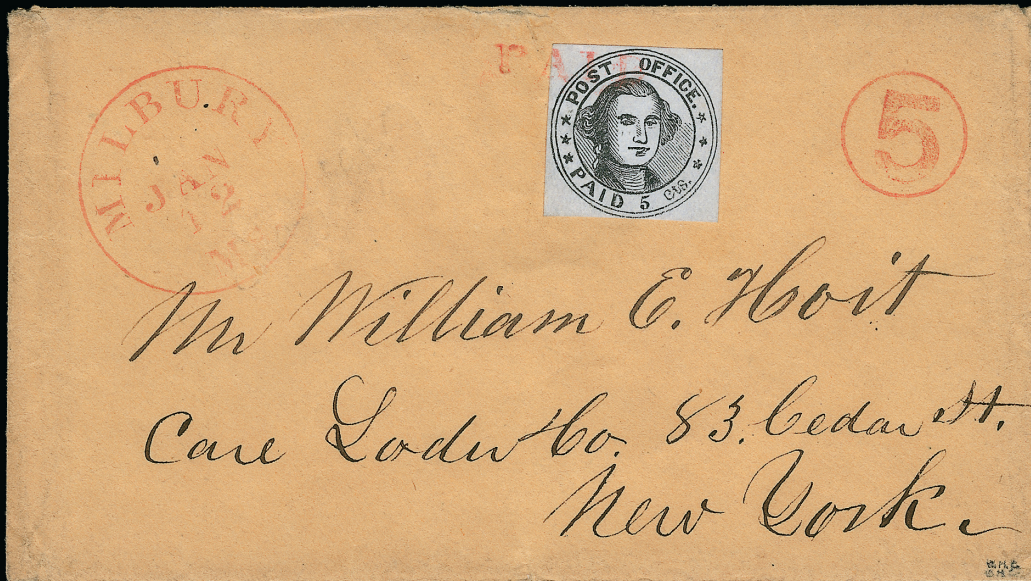 MILBURY
JAN
12
MS.
PAID
POST OFFICE.
PAID 5 cts.
5
Mr William E. Hoit
Care Loder & Co. 83. Cedar St.
New York.